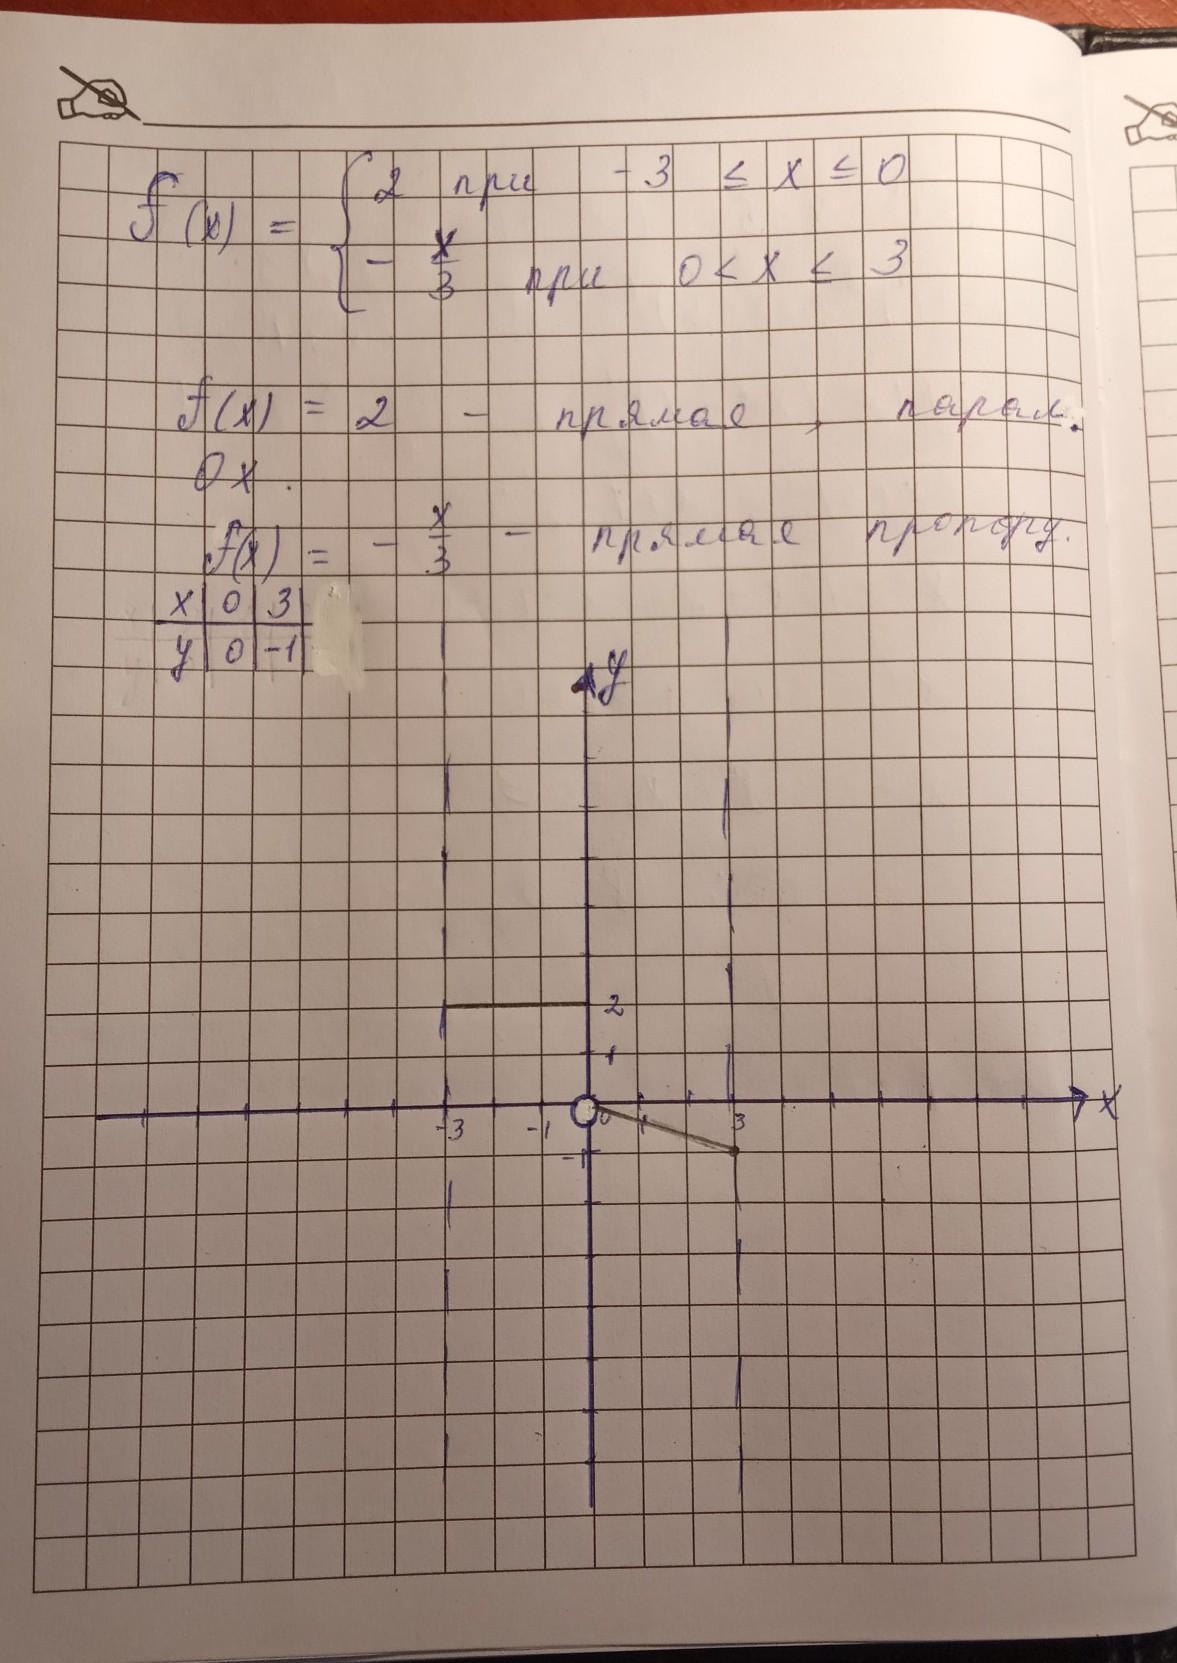 f(x) = { 2 при -3 ≤ x ≤ 0
- x/3 при 0 < x ≤ 3
f(x) = 2 - прямая, парал.
Ox.
f(x) = - x/3 - прямая пропорц.
x | 0 | 3 |
y | 0 | -1 |
y
2
1
-3 -1 0 1 3 x
-1